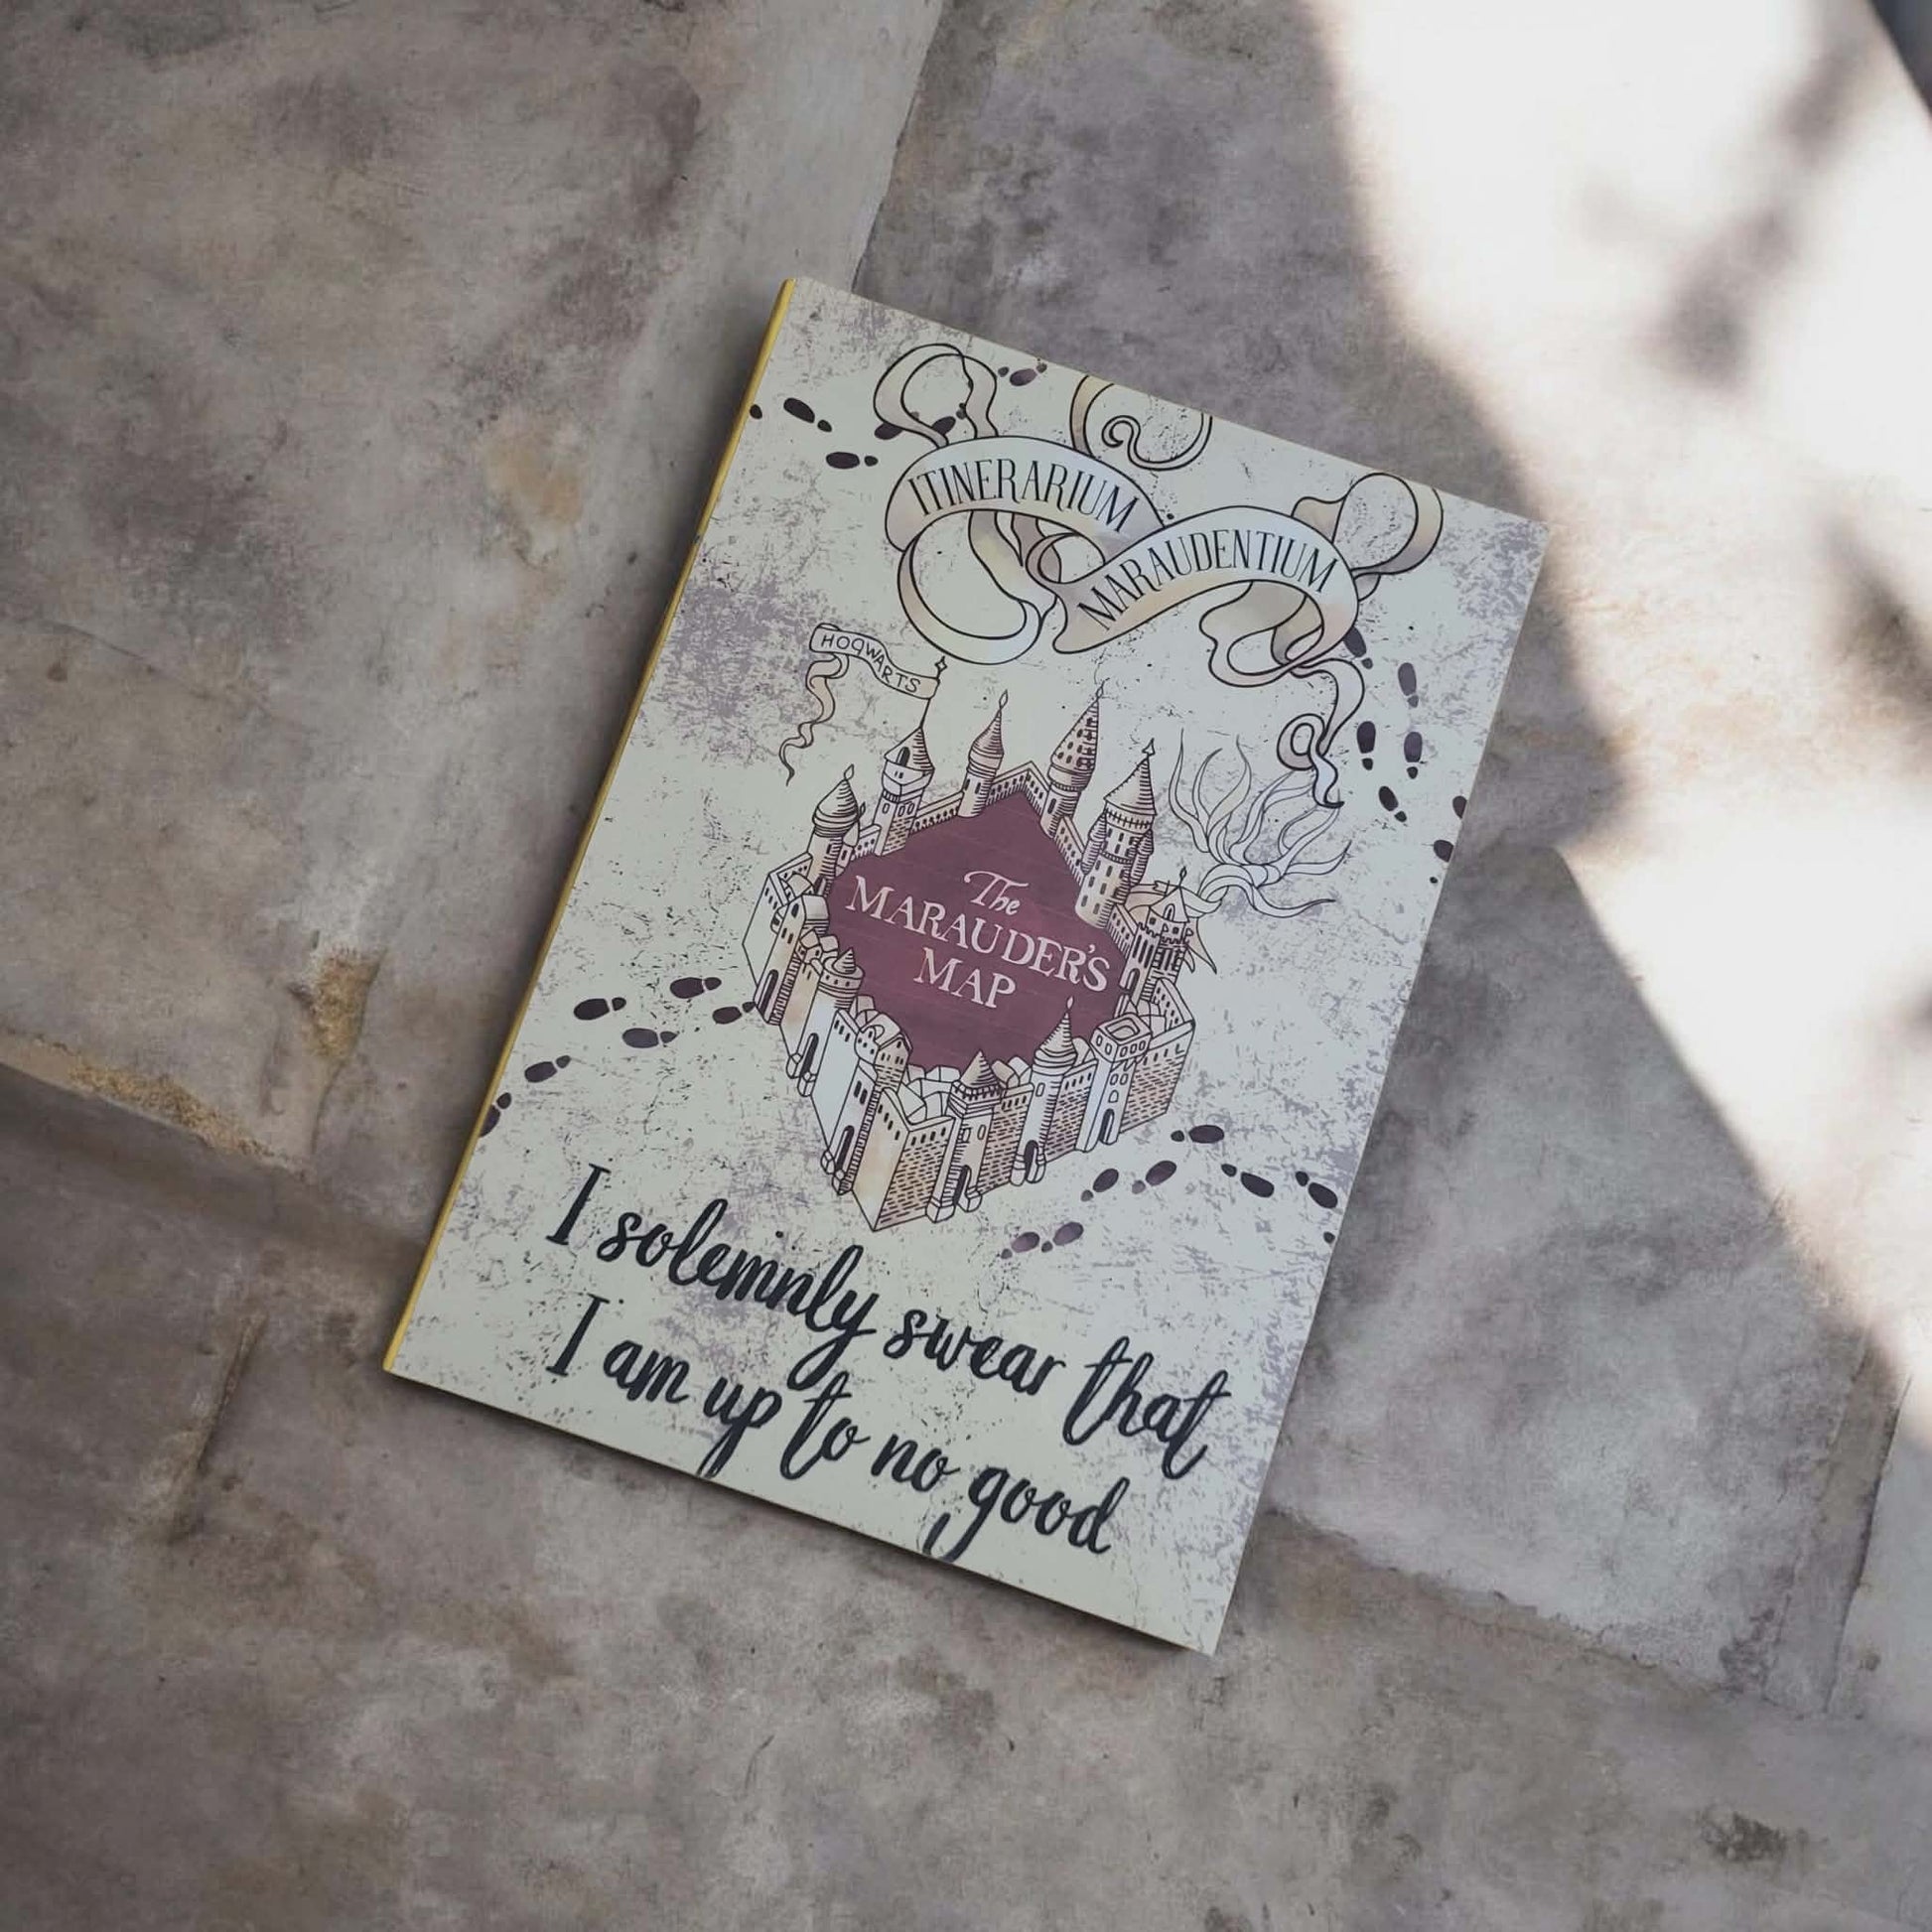 ITINERARIUM
MARAUDENTIUM
HOGWARTS
The
MARAUDER'S
MAP
I solemnly swear that
I am up to no good